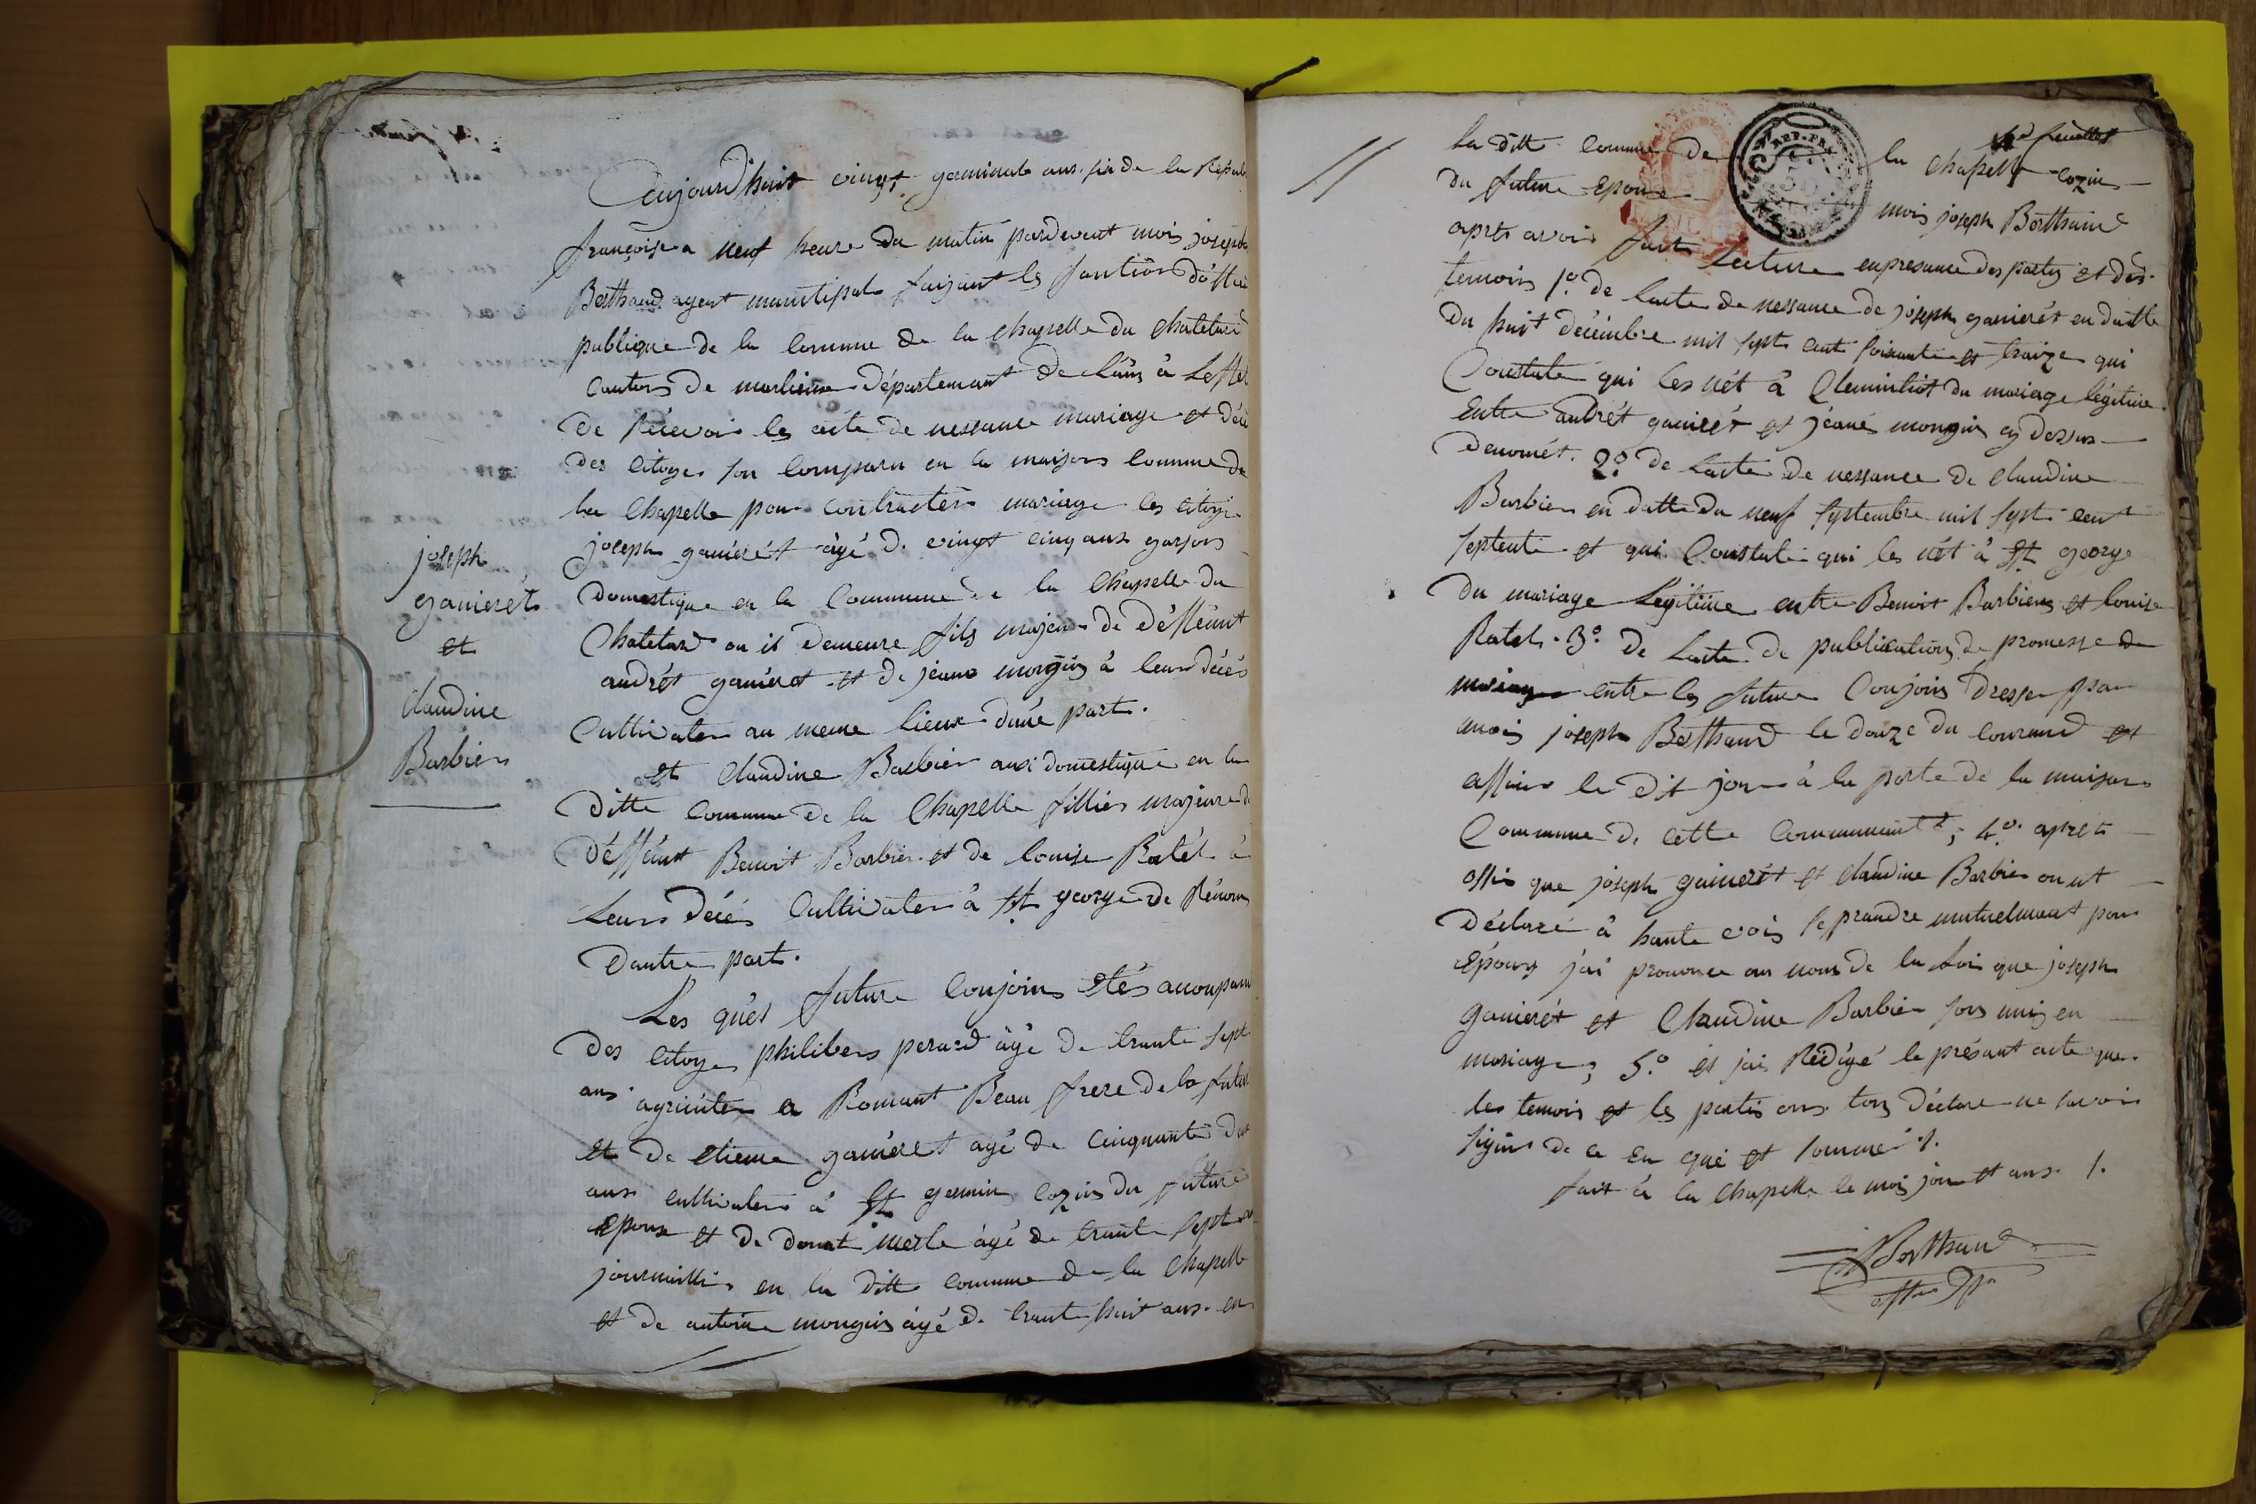 joseph
ganierét
et
Claudine
Barbier
aujourd'huit vingt germinale ans six de la Répub
françoise a neuf heure du matin pardevent mois joseph
Berthaud agent municipale faizant les fonction
publique de la comune de la chapelle du chatelard
canton de marlieux département de Lâin à
de récevoir les acte de nessance mariage et décé
des citoye son comparu en la maison commune de
la Chapelle pour contracter mariage les citoye
joseph ganierét âgé de vingt cinq ans garson
domestique en la Commune de la Chapelle du
Chatelard ou il demeure fils majeur de défféunt
andrét ganierét et de jeane mongin à leur décés
Cultivater au meme lieux d'une part.
et Claudine Barbier ausi domestique en la
ditte comune de la Chapelle fillies majeure de
défféunt Benoit Barbier et de louise Ratél à
Leurs décés Cultivater à St george de Rénom
dautre part.
Les qués future conjoins etés
des citoye philibers perard âgé de trante sept
ans a Romant Beau frere de la future
et de etiene ganieret agé de cinquante
ans cultivater à St germin cozin du future
epoux et de donat merle âgé de trante sept
journallié en la ditte comune de la Chapelle
et de antoine mongin âgé de trante huit ans en
la ditte comune de la chapelle cozin
du future epoux mois joseph Berthaud
aprés avoir fait lecture enpresance des partiz et des
temoin 1º de lacte de nessance de joseph ganierét en datte
du huit décimbre mil sept cent soisante et traize qui
Constate qui les nét à du mariage légitime
entre andrét ganierét et jéane mongin cy dessus
denomét. 2º de lacte de nessance de Claudine
Barbier en datte du neuf septembre mil sept cent
septente et qui Constate qui les nét à St george
du mariage Legitime entre Benoit Barbier et louise
Ratel. 3º de Lacte de publication de promesse de
mariage entre les future Conjoin dresse par
mois joseph Berthaud le douze du courand et
affiché le dit jour à la porte de la maison
Commune de cette ; 4º aprés
que joseph ganierét et Claudine Barbier
déclaré à haute vois se prandre mutuelment pour
époux j'ai prononce au nom de la Loi que joseph
ganierét et Claudine Barbier son unis en
mariage ; 5º et jai Rédigé le présant acte que
les temoin et les partis ons tous déclare ne savoir
signé de ce en qui et sommé
fait à la Chapelle le mois jour et ans
Berthaud